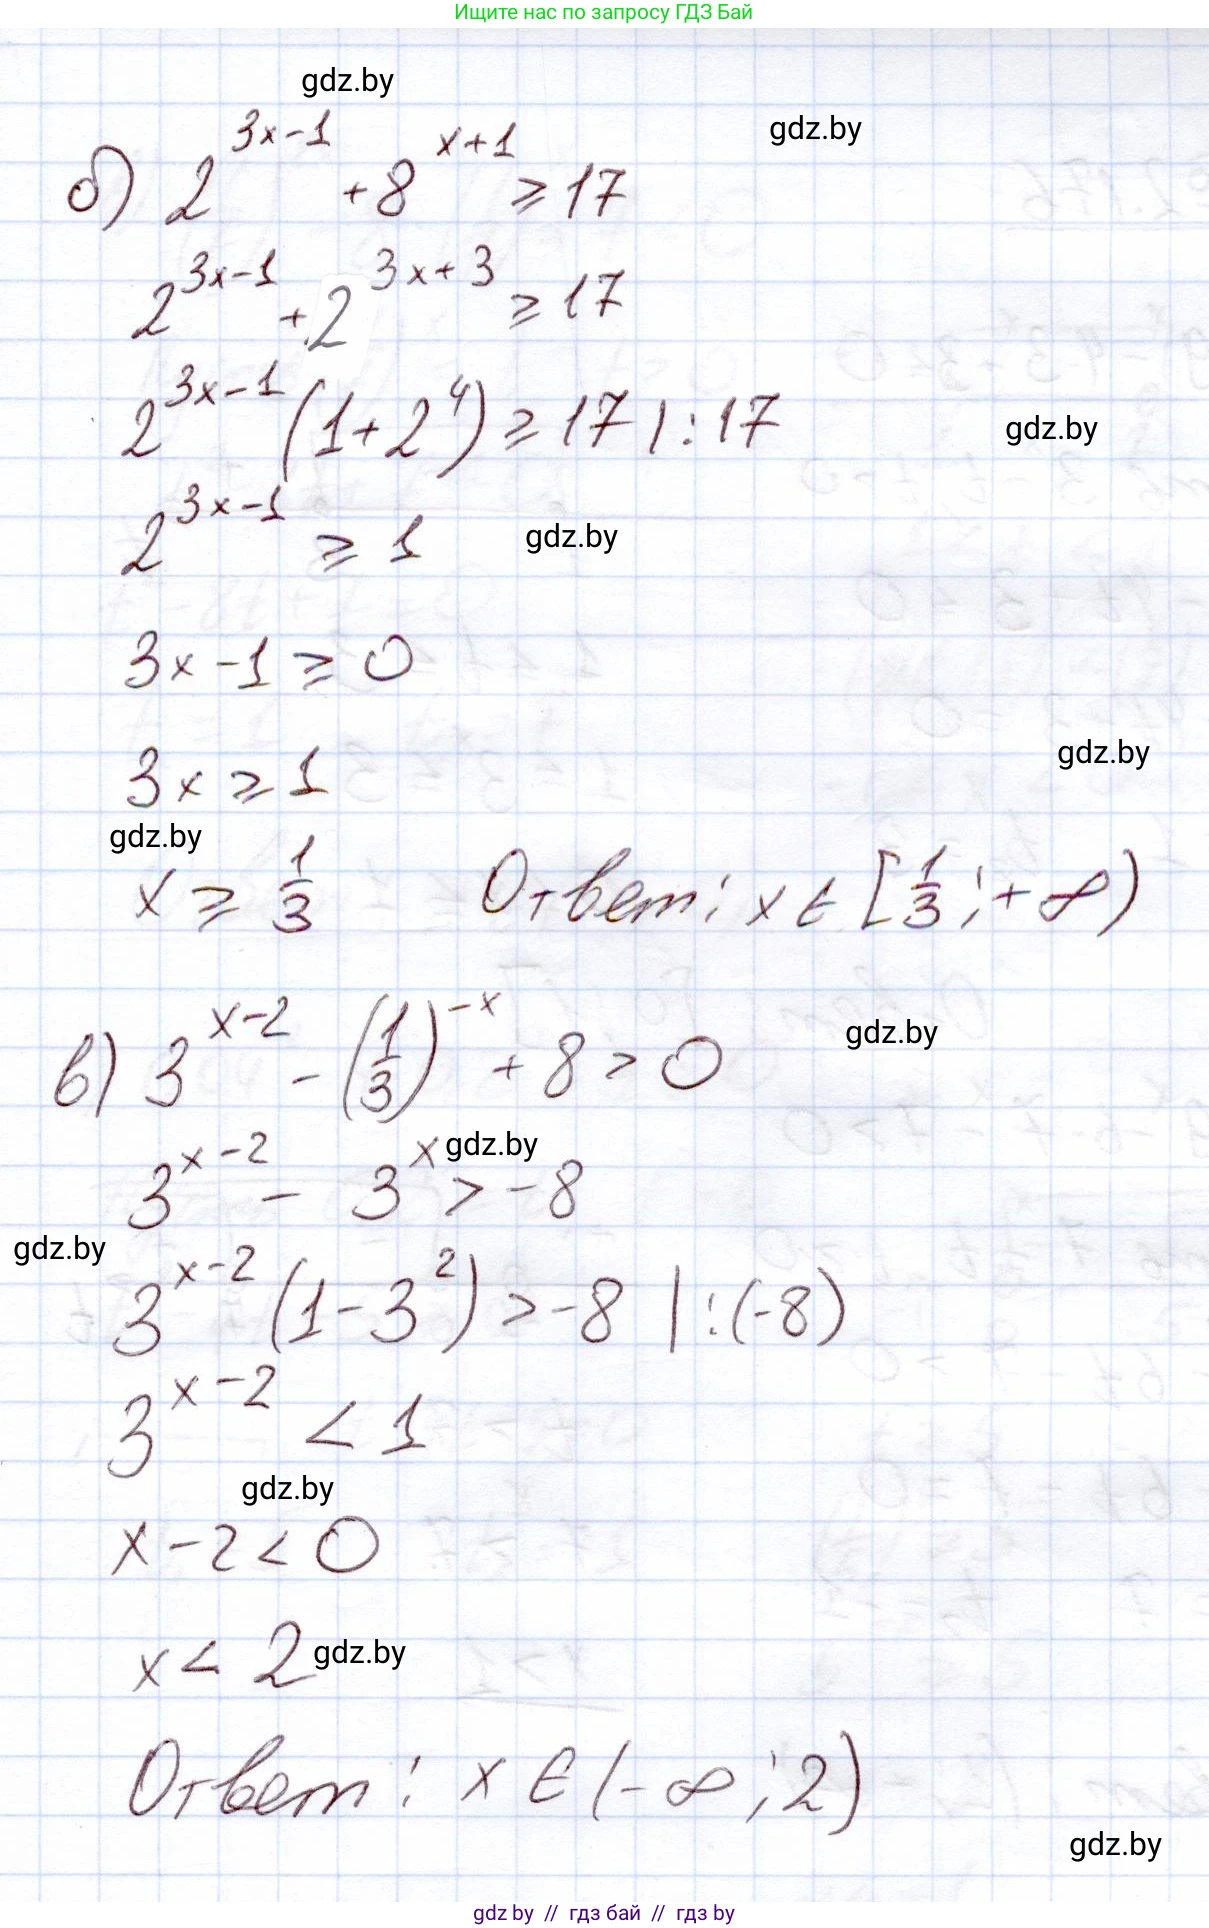 Ищите нас по запросу ГДЗ Бай
gdz.by
gdz.by
б) 2^(3x-1) + 8^(x+1) ≥ 17
2^(3x-1) + 2^(3x+3) ≥ 17
2^(3x-1) (1+2^4) ≥ 17 | : 17
gdz.by
2^(3x-1) ≥ 1
gdz.by
3x-1 ≥ 0
3x ≥ 1
gdz.by
gdz.by
x ≥ 1/3 Ответ: x ∈ [1/3; +∞)
в) 3^(x-2) - (1/3)^(-x) + 8 > 0
gdz.by
3^(x-2) - 3^x > -8
gdz.by
gdz.by
3^(x-2) (1-3^2) > -8 | : (-8)
3^(x-2) < 1
gdz.by
x-2 < 0
x < 2
gdz.by
Ответ: x ∈ (-∞; 2)
gdz.by
gdz.by // гдз бай // гдз by